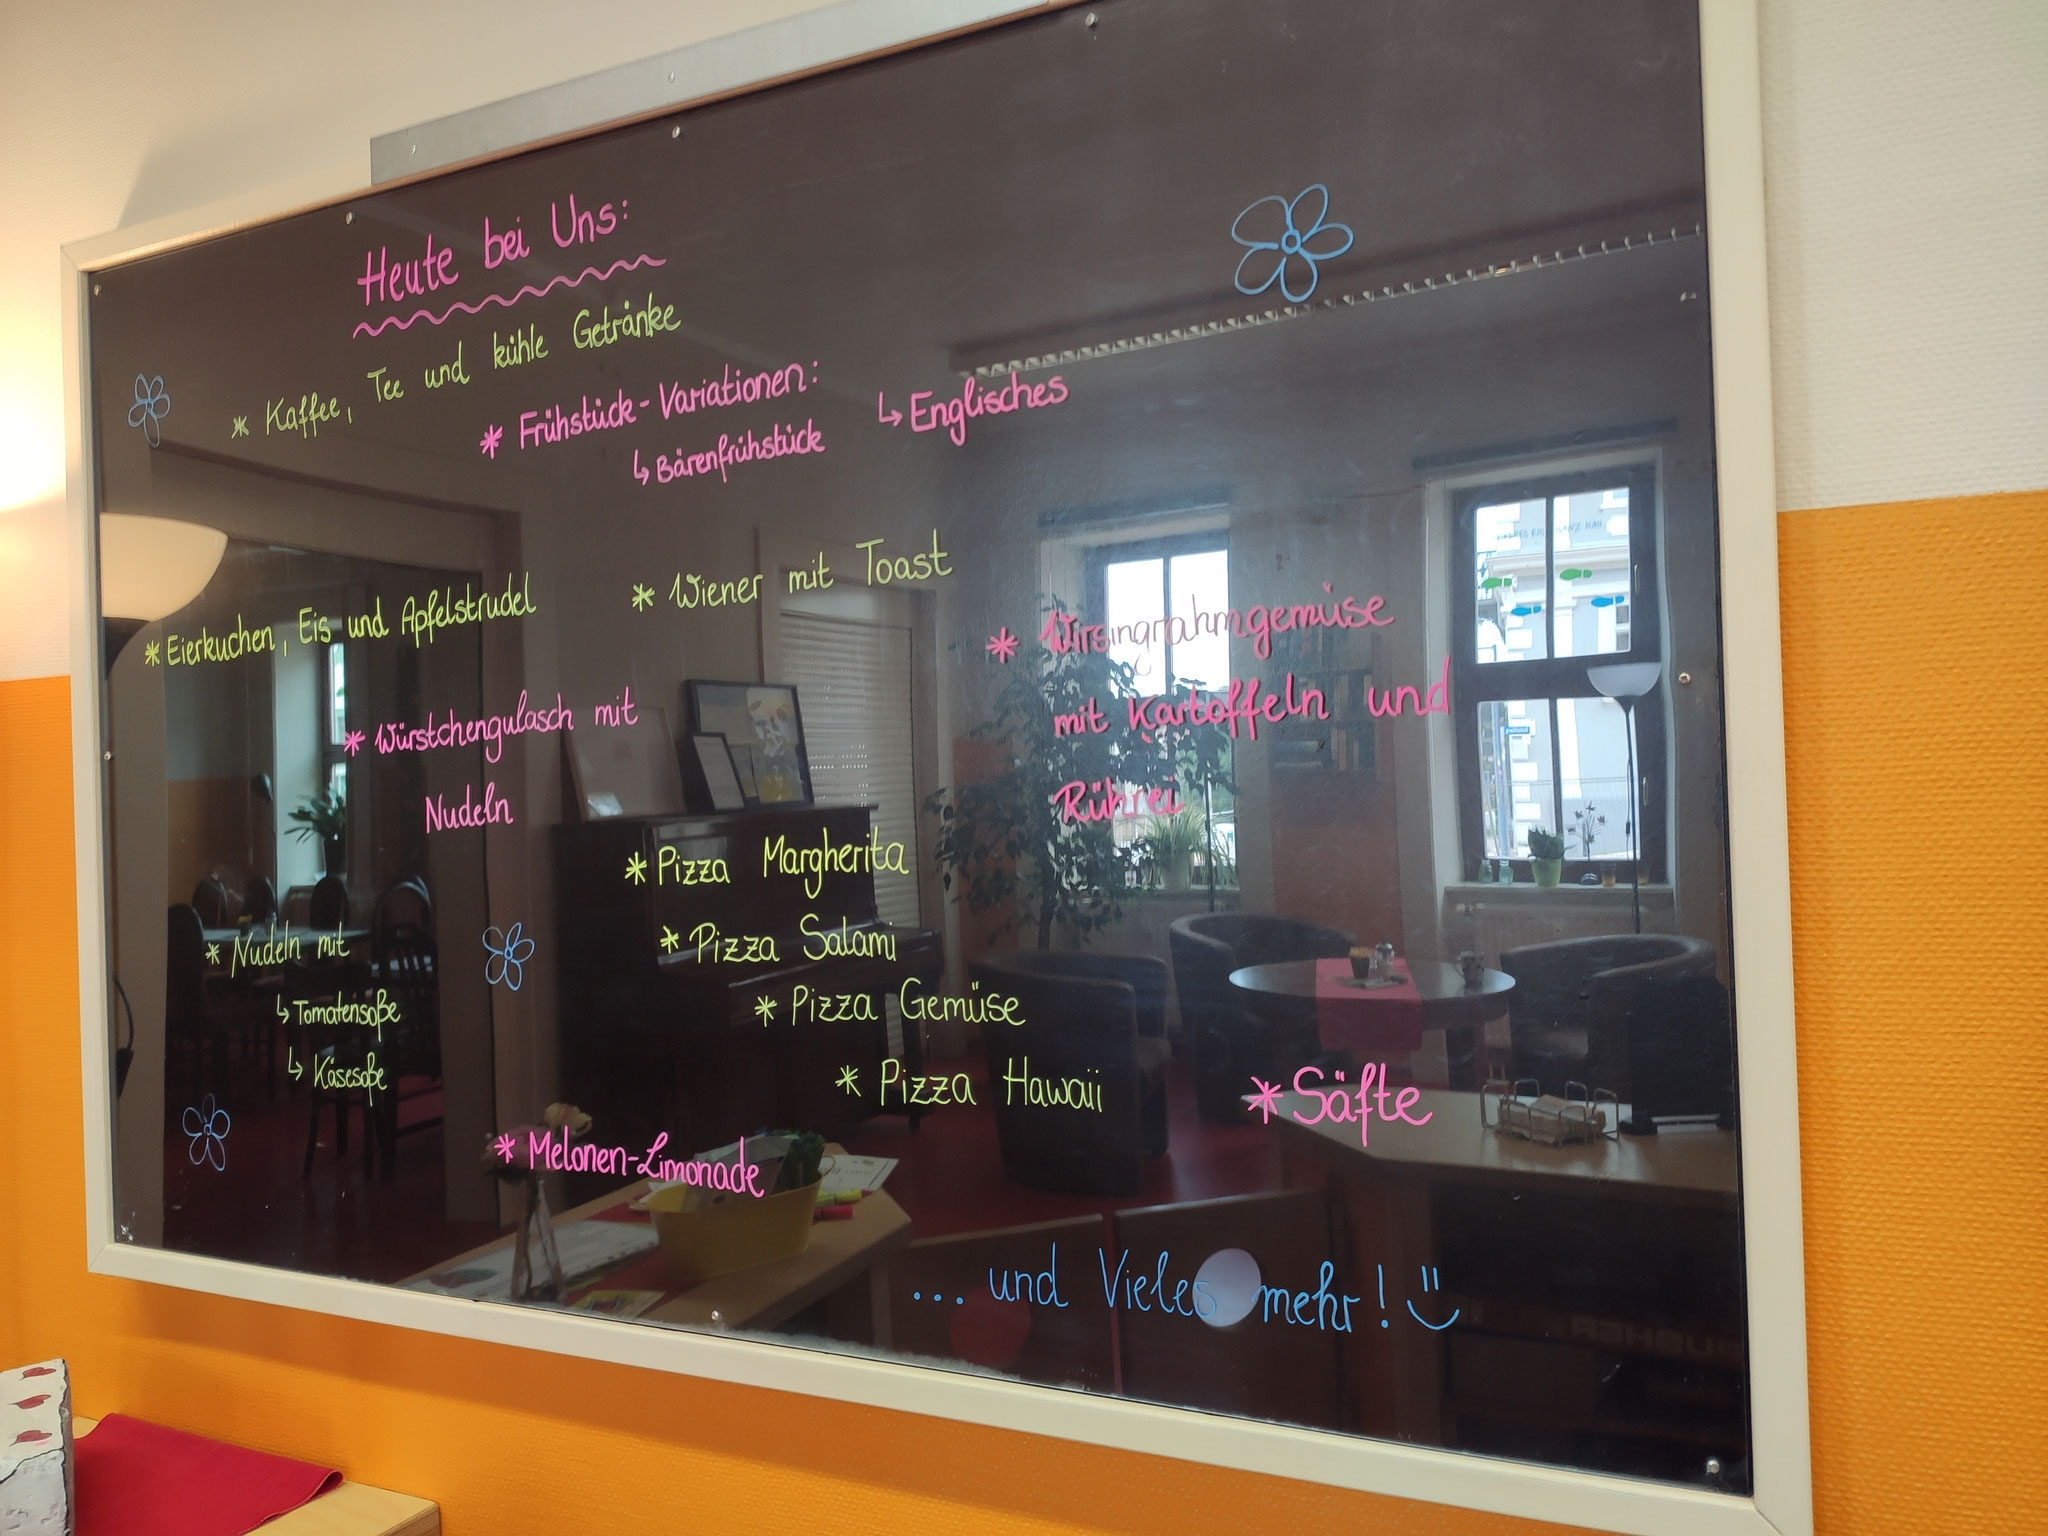 Heute bei Uns:
* Kaffee, Tee und kühle Getränke
* Frühstück-Variationen:
↳ Bärenfrühstück
↳ Englisches
* Eierkuchen, Eis und Apfelstrudel
* Wiener mit Toast
* Würstchengulasch mit
Nudeln
* Wirsingrahmgemüse
mit Kartoffeln und
Rührei
* Nudeln mit
↳ Tomatensoße
↳ Käsesoße
* Pizza Margherita
* Pizza Salami
* Pizza Gemüse
* Pizza Hawaii
* Säfte
* Melonen-Limonade
... und Vieles mehr!